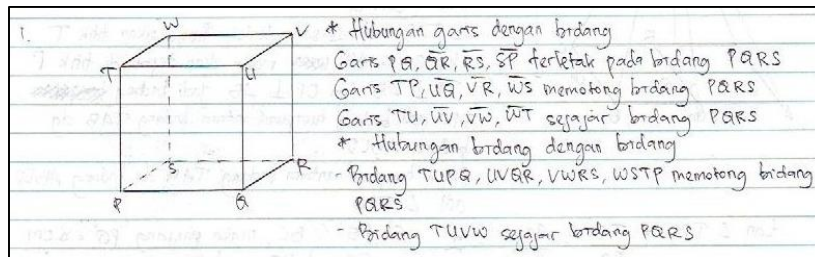 1.
W
V
T
U
S
R
P
Q
* Hubungan garis dengan bidang
Garis PQ, QR, RS, SP terletak pada bidang PQRS
Garis TP, UQ, VR, WS memotong bidang PQRS
Garis TU, UV, VW, WT sejajar bidang PQRS
* Hubungan bidang dengan bidang
- Bidang TUPQ, UVQR, VWRS, WSTP memotong bidang
PQRS
- Bidang TUVW sejajar bidang PQRS